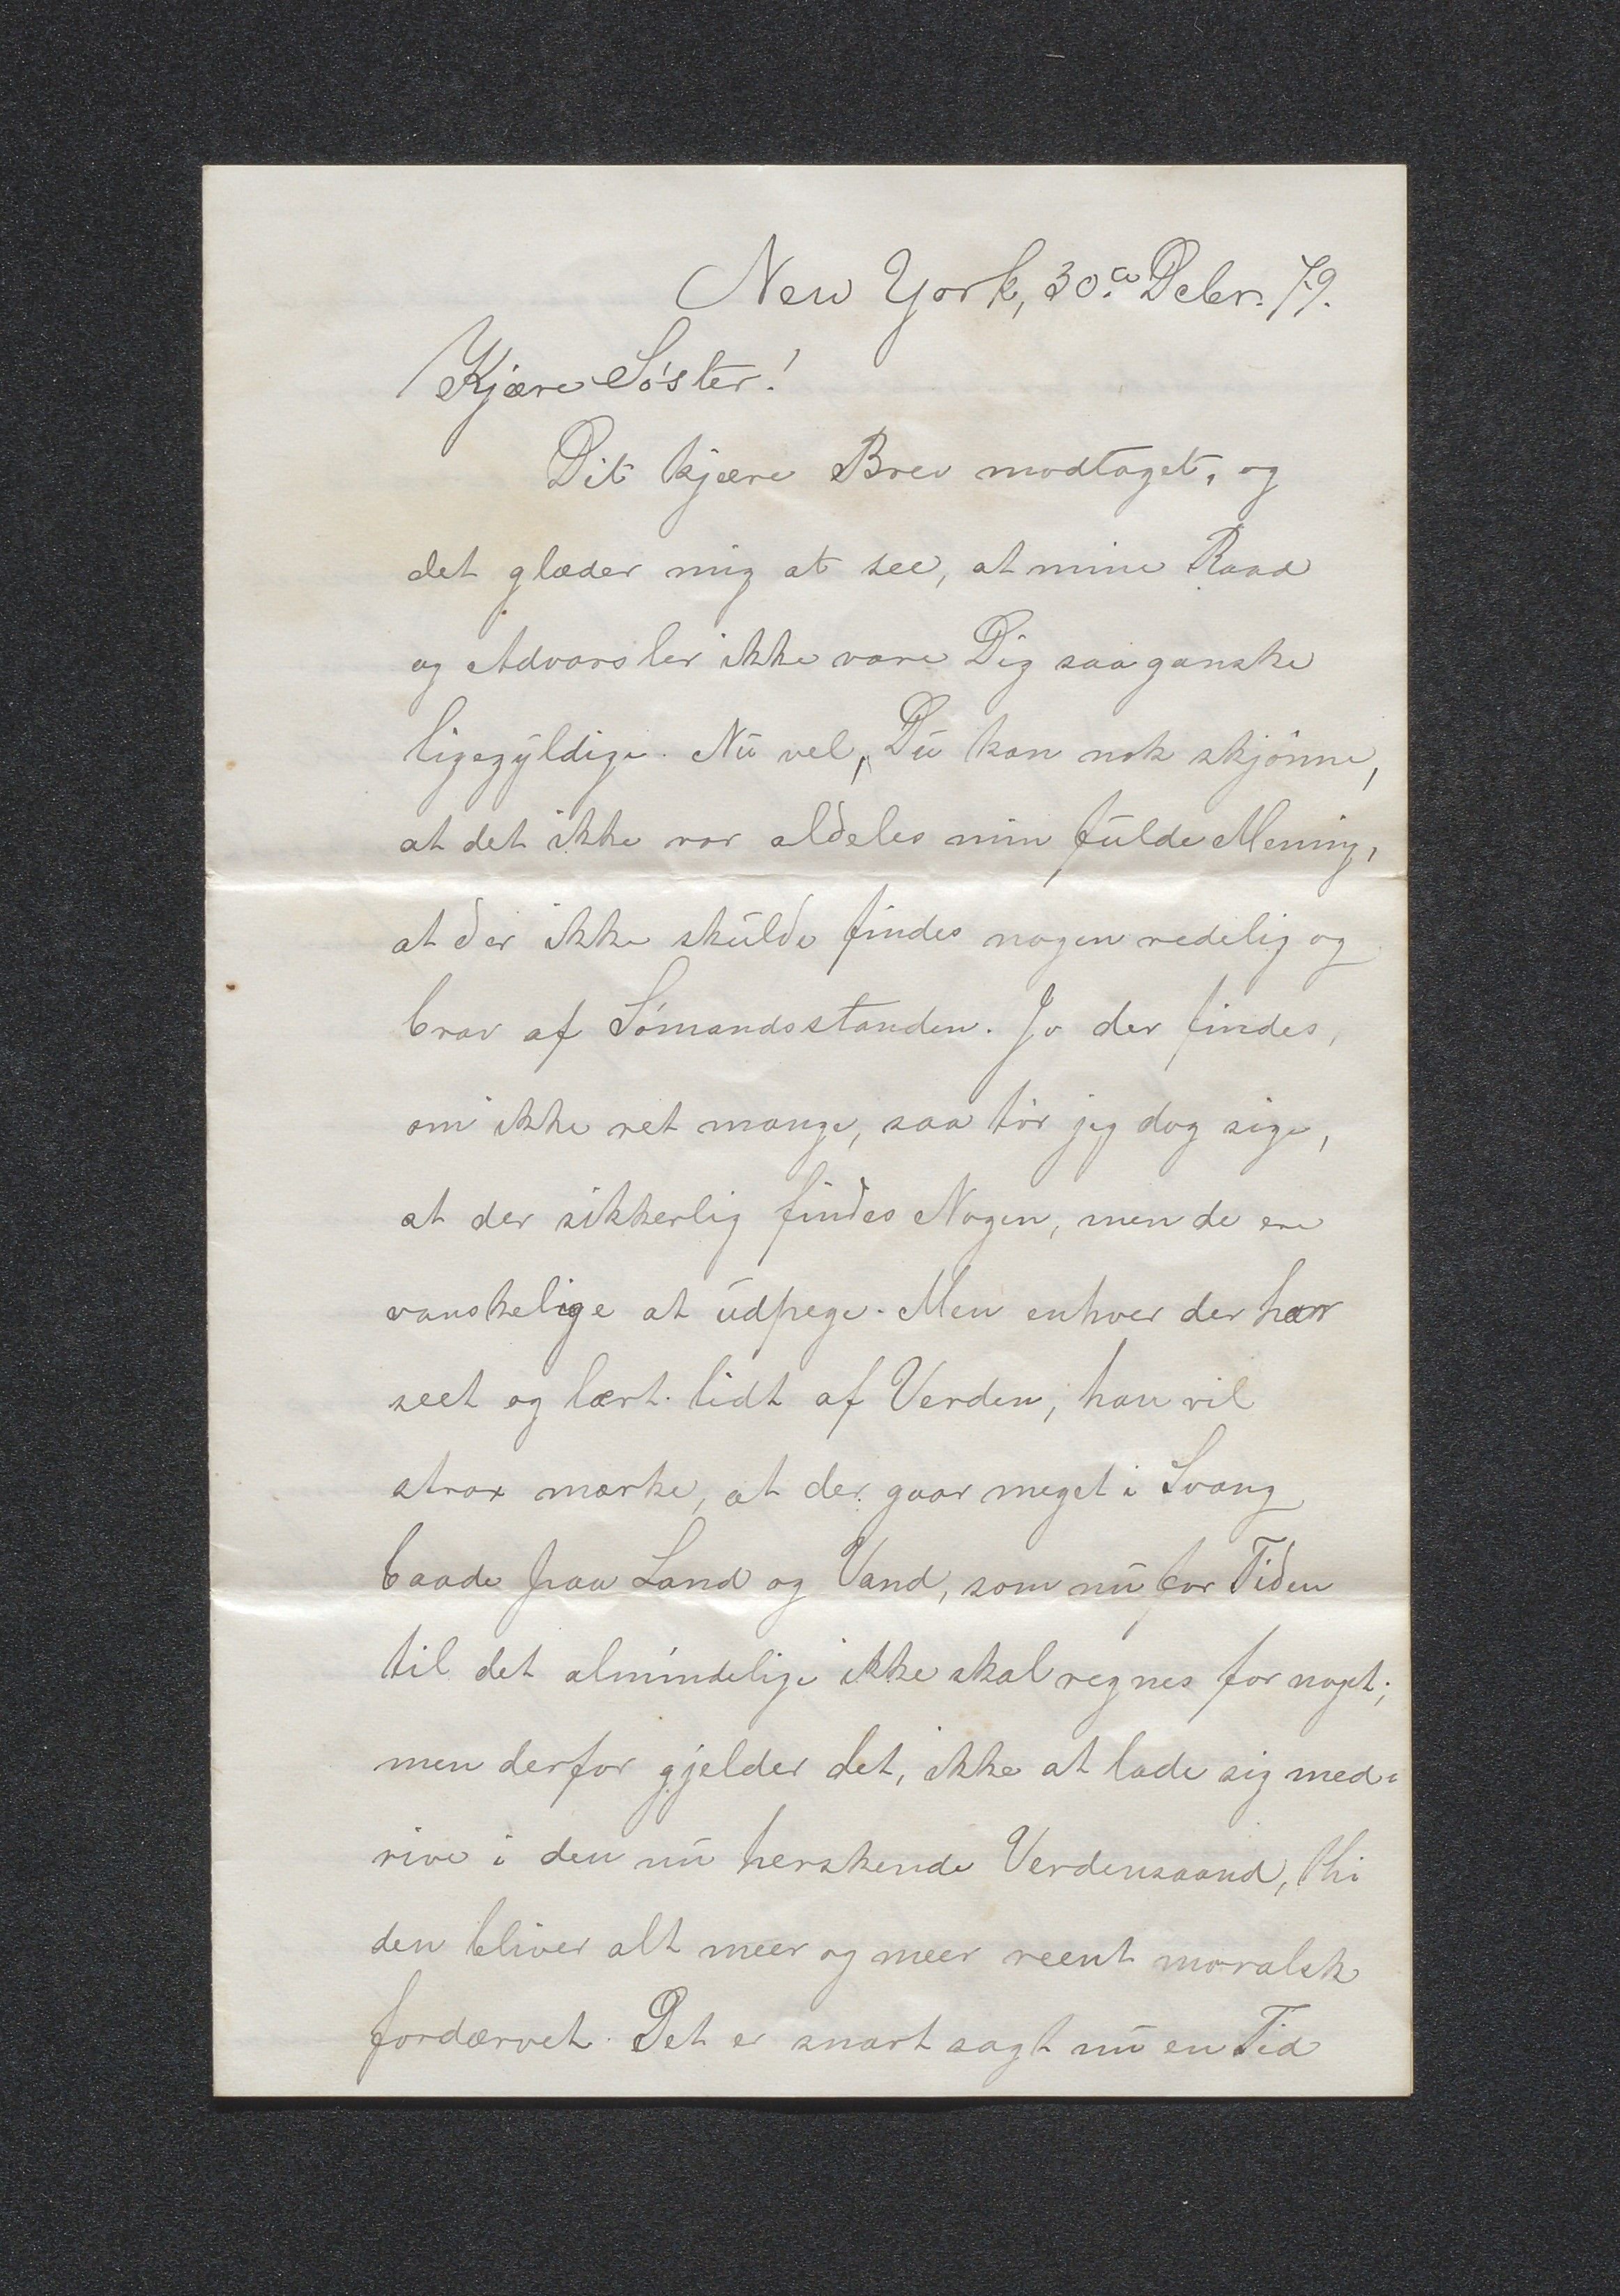 New York, 30te Debr. 79.
Kjære Söster!
Dit kjære Brev modtaget, og
det glæder mig at see, at mine Raad
og Advarsler ikke vare Dig saa ganske
ligegyldige. Nu vel, Du kan nok skjönne,
at det ikke var aldeles min fulde Mening,
at der ikke skulde findes nogen redelig og
brav af Sömandsstanden. Jo der findes,
om ikke ret mange, saa tör jeg dog sige,
at der sikkerlig findes Nogen, men de ere
vanskelige at udpege. Men enhver der har
seet og lært lidt af Verden, han vil
strax mærke, at der gaar meget i Svang
baade paa Land og Vand, som nu for Tiden
til det almindelige ikke skal regnes for noget;
men derfor gjelder det, ikke at lade sig med-
rive i den nu herskende Verdensaand, thi
den bliver alt meer og meer reent moralsk
fordærvet. Det er snart sagt nu en Tid